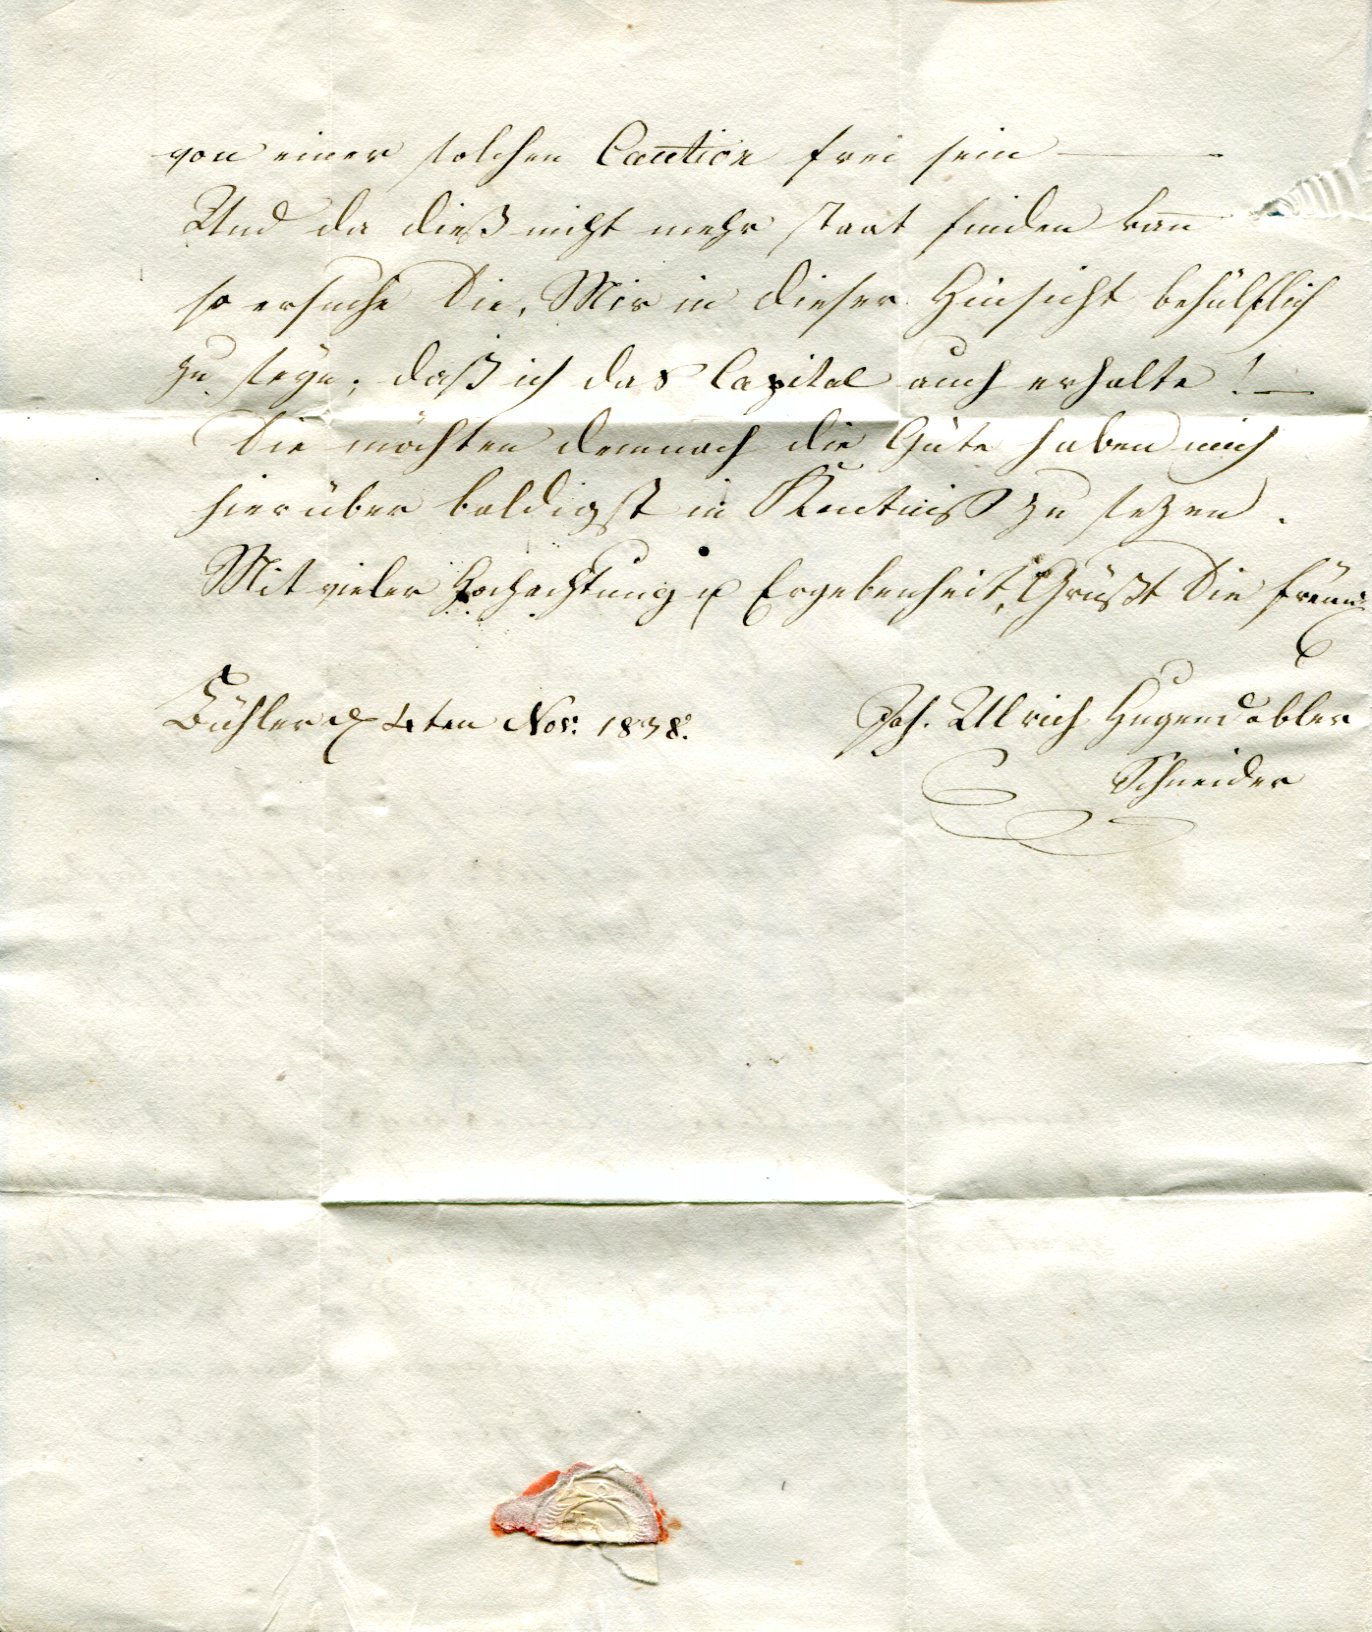 von einer solchen Caution frei sein —
Und da dieß nicht mehr staat finden kan̄
so ersuche Sie, Mir in dieser Hinsicht behülflich
zu seÿn, daß ich das Capital auch erhalte! —
Sie möchten demnach die Güte haben mich
hierüber baldigst in Kentniß zu setzen.
Mit vieler Hochachtung u Ergebenheit, Grüßt Sie
Bühler d 4ten Nov: 1838.
Joh. Ulrich Hugendobler
Schneider